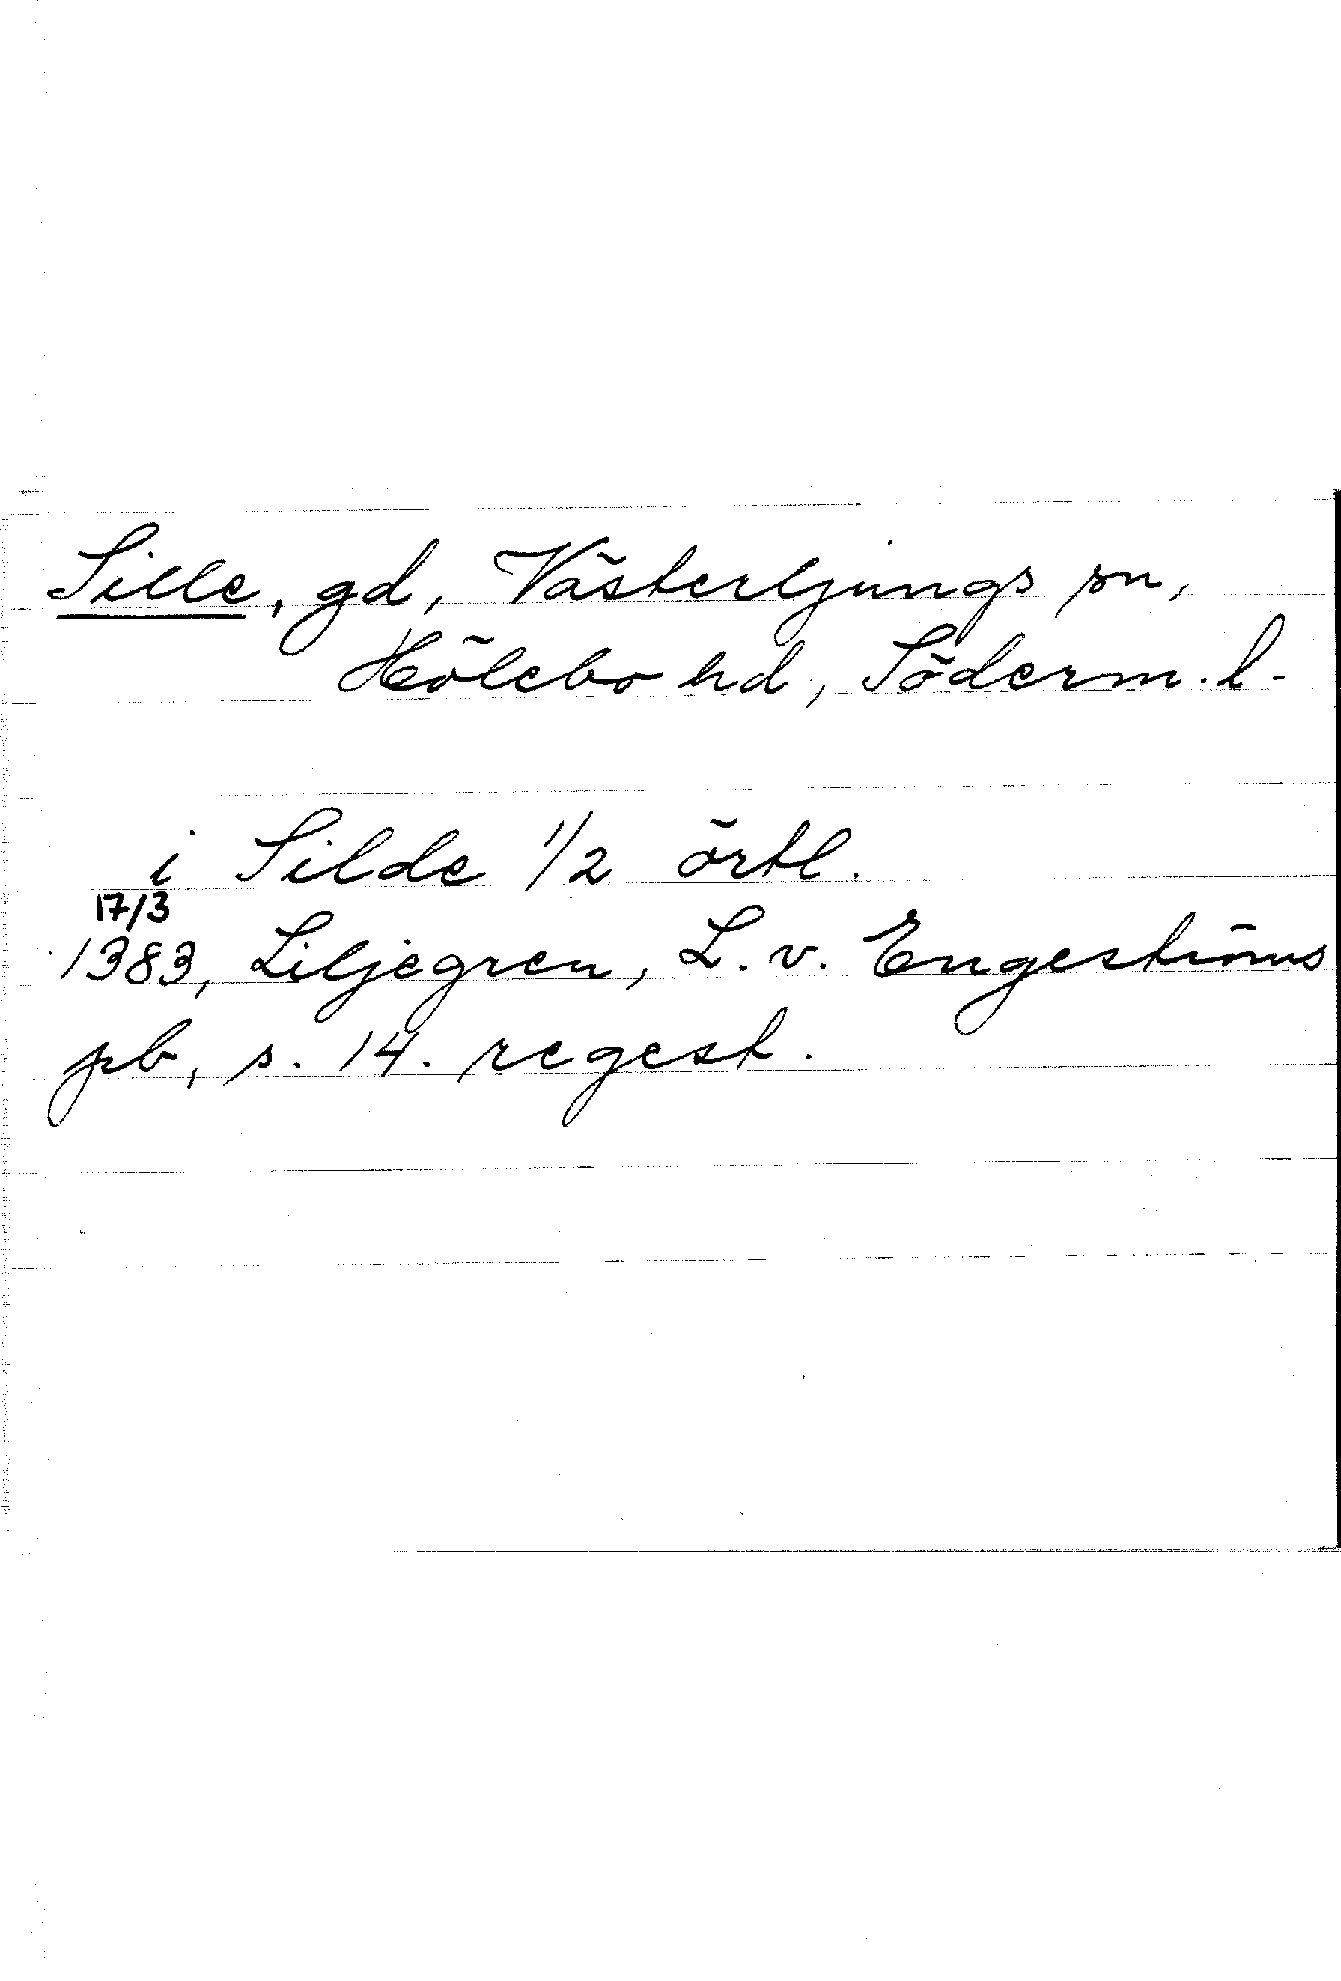 Sille, gd, Västerljungs sn,
Hölebo hd, Söderm. l.
i Silde 1/2 örtl.
17/3
1383, Liljegren, L. v. Engeströms
pb, s. 14. regest.